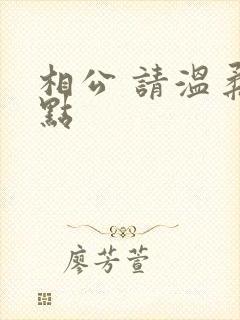 相公 請溫柔
點
廖芳萱